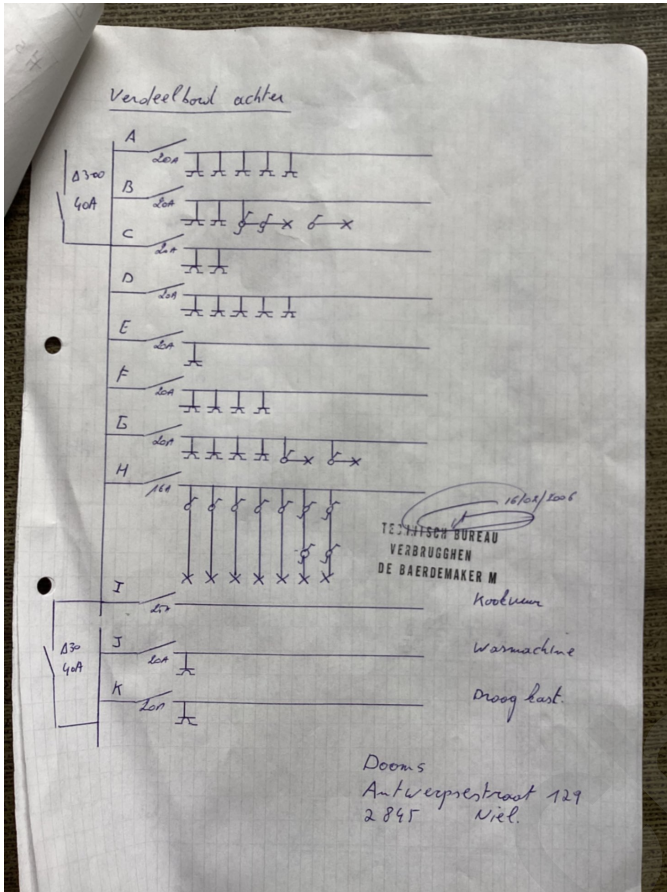 Verdeelbord achter
A
20A
Δ300
40A
B
20A
C
20A
D
20A
E
20A
F
20A
G
20A
H
16A
16/02/2006
TECHNISCH BUREAU
VERBRUGGHEN
DE BAERDEMAKER M
I
Kookvuur
Δ30
40A
J
20A
Wasmachine
K
20A
Droogkast.
Dooms
Antwerpsestraat 129
2845 Niel.